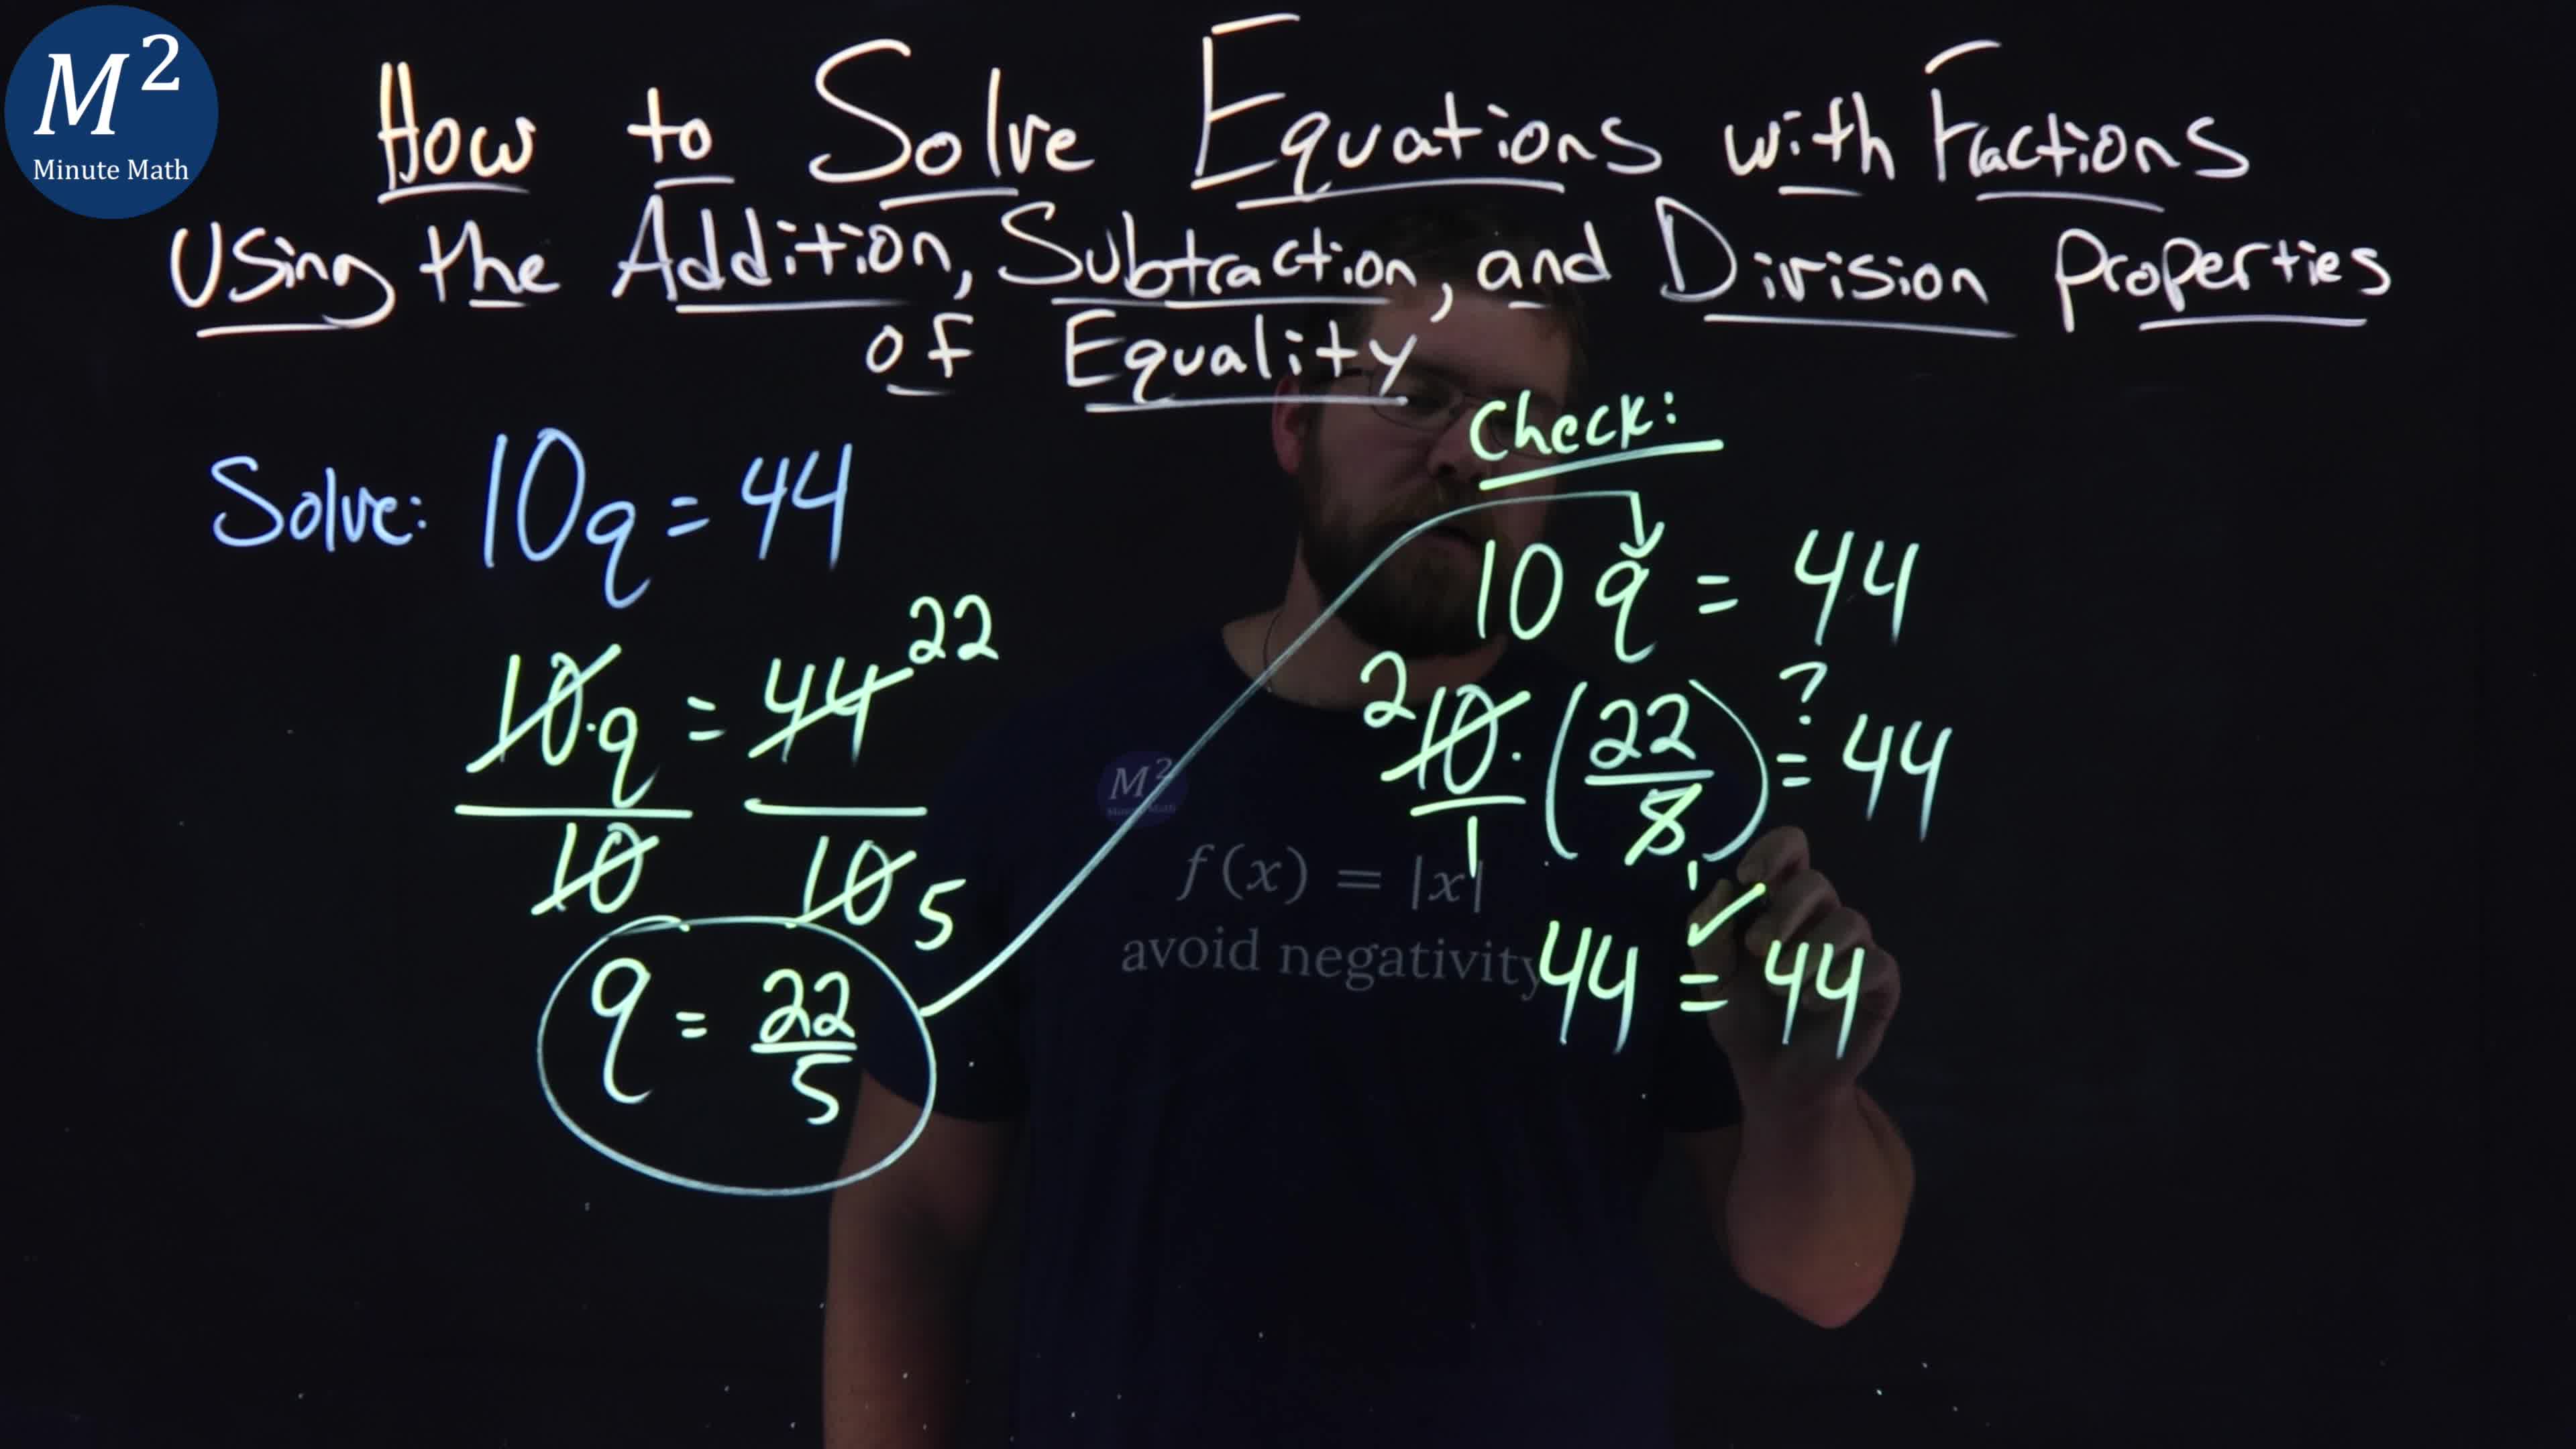 M²
Minute Math
How to Solve Equations with Fractions
Using the Addition, Subtraction, and Division Properties
of Equality
Solve: 10q = 44
10·q = 44 22
10 10 5
q = 22/5
Check:
10q = 44
2 10/1 · (22/5) ?= 44
1
44 = 44 ✓
M²
Minute Math
f(x) = |x|
avoid negativity